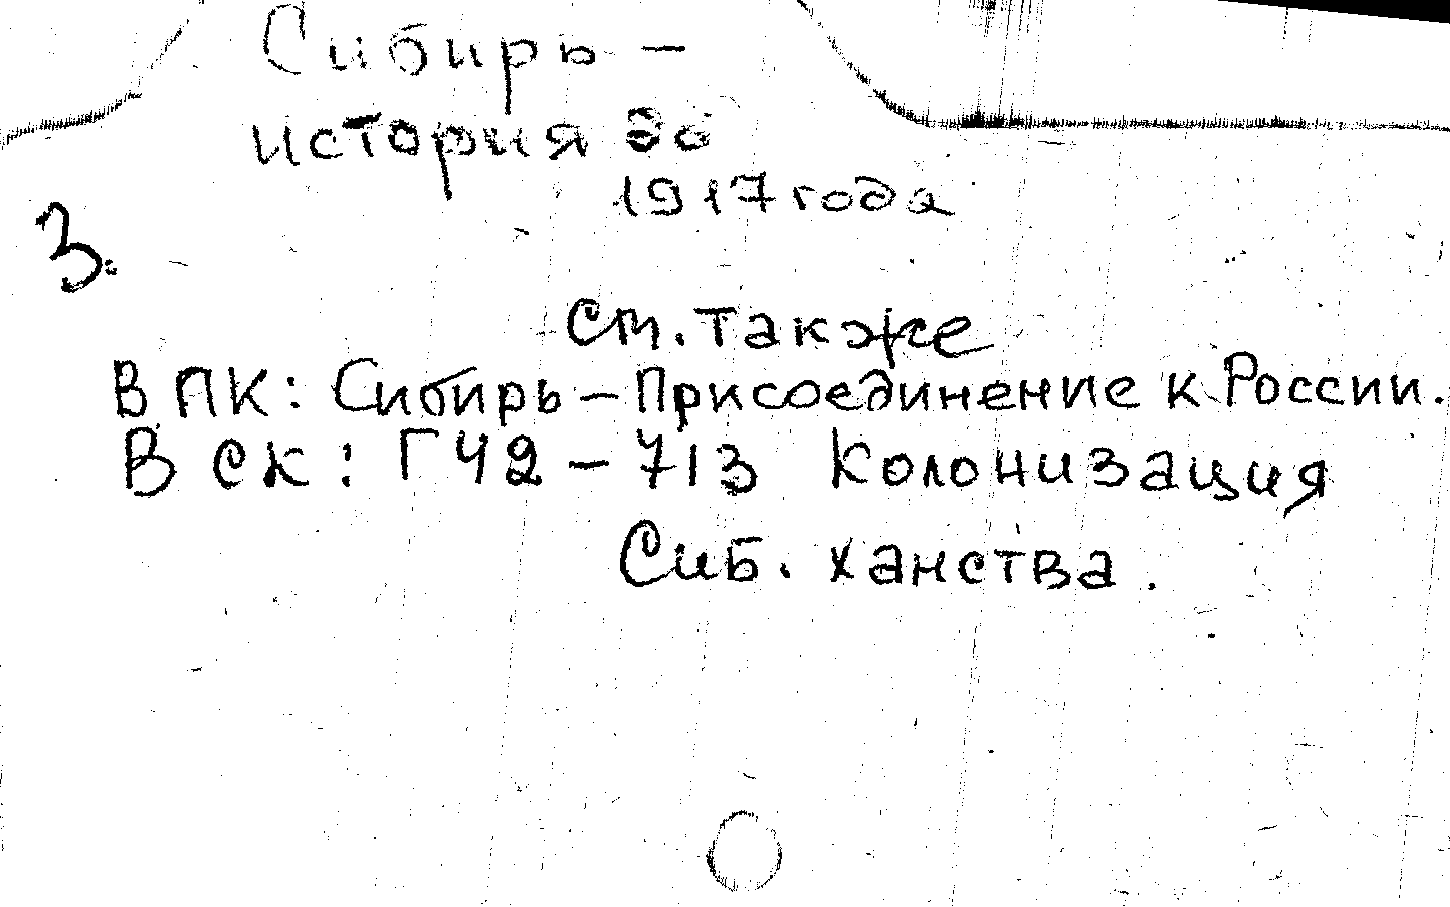 Сибирь –
история до
1917 года
3.
См. также
В ПК: Сибирь – Присоединение к России.
В СК: Г42 – 713 Колонизация
Сиб. ханства.